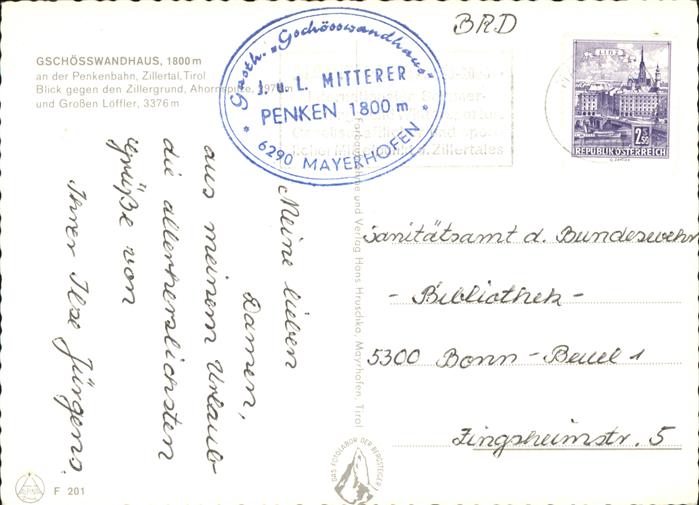 GSCHÖSSWANDHAUS, 1800 m
an der Penkenbahn, Zillertal, Tirol
Blick gegen den Zillergrund, Ahornspitze, 2971 m
und Großen Löffler, 3376 m
Gasth. „Gschösswandhaus"
J. u. L. MITTERER
PENKEN 1800 m
* 6290 MAYERHOFEN *
BRD
LINZ
2.50
REPUBLIK ÖSTERREICH
Meine lieben
Damen,
aus meinem Urlaub
die allerherzlichsten
Grüße von
Ihrer Ilse Jürgens.
Sanitätsamt d. Bundeswehr
- Bibliothek -
5300 Bonn-Beuel 1
Zingsheimstr. 5
und Verlag Hans Hruschka, Mayrhofen, Tirol
DAS FOTOLABOR DER BERGSTEIGER
F 201